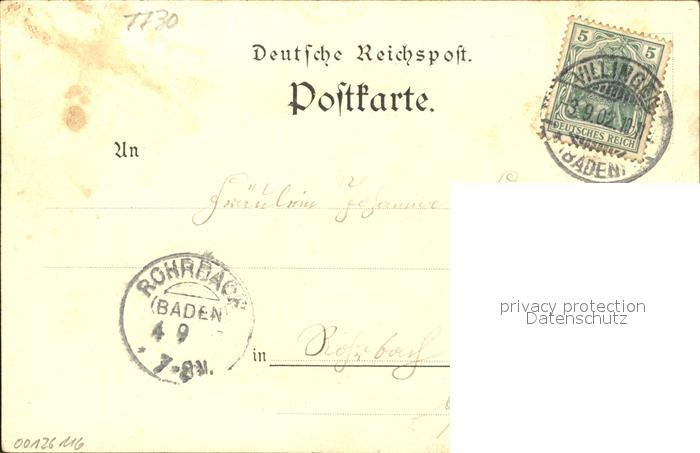 7730
Deutsche Reichspost.
Postkarte.
5 5
VILLINGEN
3.9.02
DEUTSCHES REICH
(BADEN)
An
Fräulein Johanna
ROHRBACH
(BADEN)
4 9
7-8V.
privacy protection
Datenschutz
in Rohrbach
00126116